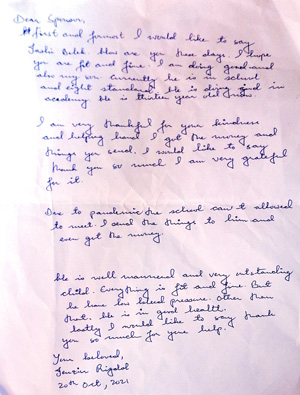 Dear Sponsor,
At first and formost I would like to say
Tashi Delek. How are you these days. I hope
you are fit and fine. I am doing good and
also my son. Currently he is in school
and eight standard. He is doing good in
academy. He is thirteen year old
I am very thankful for your kindness
and helping hand. I got the money and
things you send. I would like to say
thank you so much I am very grateful
for it.
Due to pandemic the school can't allowed
to meet. I send the things to him and
even got the money.
He is well mannered and very outstanding
child. Everything is fit and fine. But
he have low blood pressure. Other than
that. He is in good health.
lastly I would like to say thank
you so much for your help.
Your beloved,
Tenzin Rigdol
20th Oct, 2021